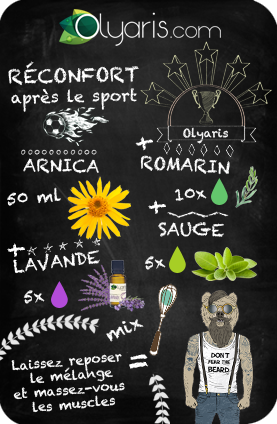 Olyaris.com
RÉCONFORT
après le sport
Olyaris
ARNICA
50 ml
+
ROMARIN
10x
+
LAVANDE
5x
+
SAUGE
5x
mix
=
Laissez reposer
le mélange
et massez-vous
les muscles
DON'T
FEAR THE
BEARD